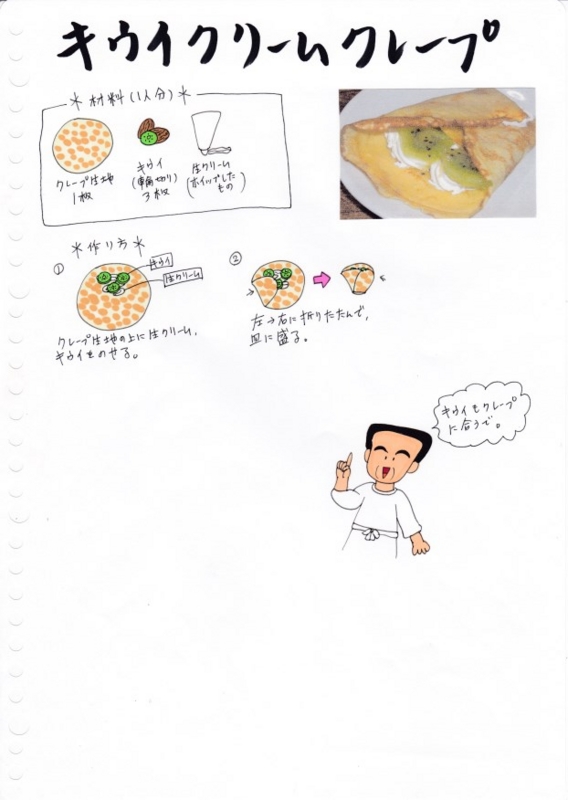 キウイクリームクレープ
＊材料(1人分)＊
クレープ生地
1枚
キウイ
(輪切り)
3枚
生クリーム
(ホイップした
もの)
＊作り方＊
①
キウイ
生クリーム
クレープ生地の上に生クリーム、
キウイをのせる。
②
左→右に折りたたんで、
皿に盛る。
キウイもクレープ
に合うで。